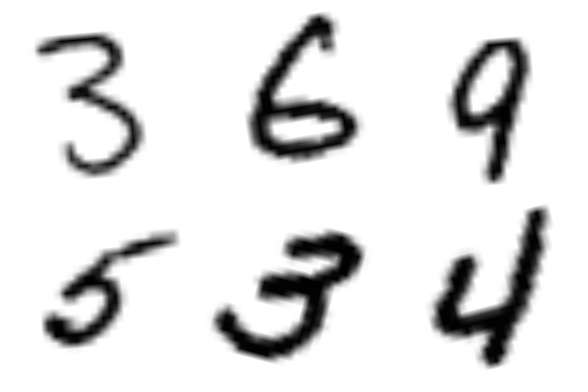 3 6 9
5 3 4